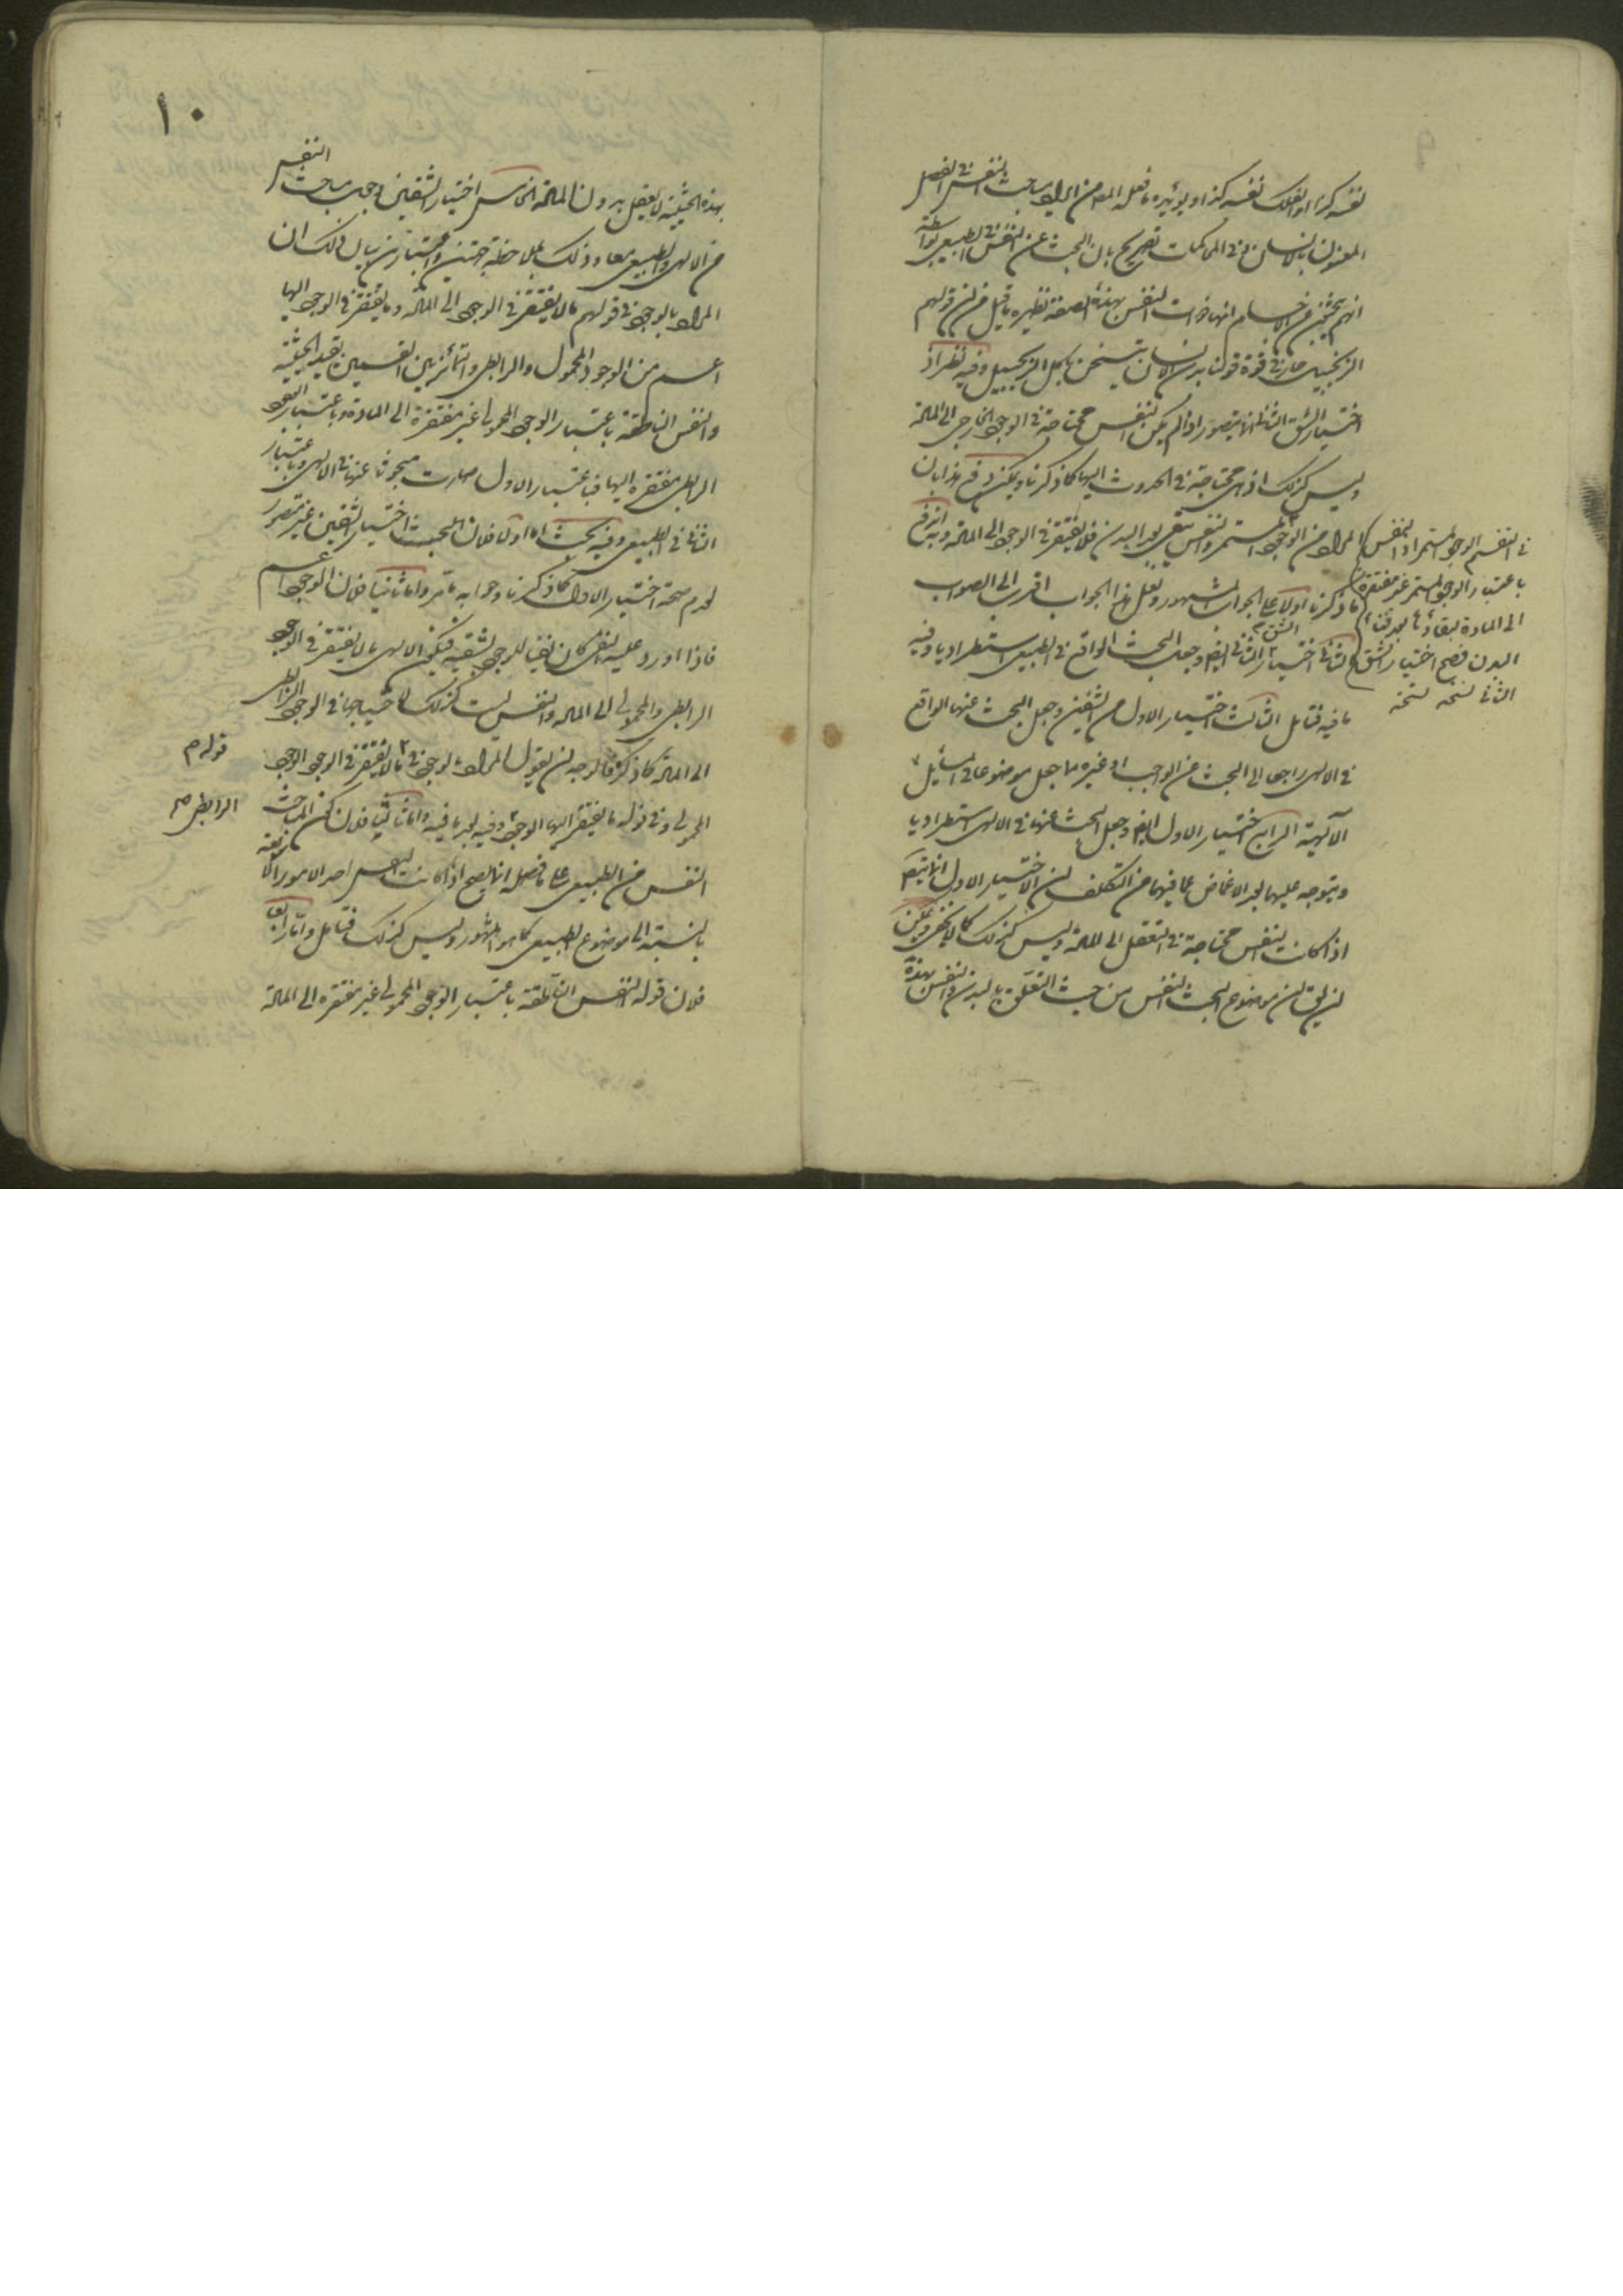 نفسه كذا والفلك نفسه كذا ويؤيده ما فعله المص من ايراد مباحث النفس في الفصل
المعنون بالانسان في المحاكمات تصريح بان البحث عن النفس في الطبيعي بواسطة
انهم يبحثون عن الاجسام انها ذات النفس بهذه الصفة نظيره ما قيل من ان قولهم
الزنجبيل حار في قوة قولنا بدن الانسان يتسخن باكل الزنجبيل وفيه نظر اذ
اختيار الشق الثاني انما يتصور اذا لم يكن النفس محتاجة في الوجود الخارجي الى المادة
وليس كذلك اذ هي محتاجة في الحدوث اليها كما ذكرنا ويمكن دفع هذا بان
المراد من الوجود المستمر والنفس يبقى بعد البدن فلا يفتقر في الوجود الى المادة وبه اندفع
ما ذكرنا اولا على الجواب المشهور ولعل هذا الجواب اقرب الى الصواب
الثاني اختيار الشق الثاني ايضا وجعل البحث الواقع في الطبيعي استطراديا وفيه
ما فيه فتأمل الثالث اختيار الاول من الشقين وجعل البحث عنها الواقع
في الالهي راجعا الى البحث عن الواجب او غيره مما جعل موضوعا في المسائل
الآلهية الرابع اختيار الاول ايضا وجعل البحث عنها في الالهي استطراديا
ويتوجه عليهما بعد الاغماض عما فيهما من التكلف ان الاختيار الاول انما يتم
اذا كانت النفس محتاجة في التعقل الى المادة وليس كذلك كما لا يخفى ويمكن
ان يق ان موضوع البحث النفس من حيث التعلق بالبدن والنفس بهذه
في التقسيم الوجود المستمر اذ النفس
باعتبار الوجود المستمر غير مفتقرة
الى المادة لبقائها بعد فناء
البدن فصح اختيار الشق
الثاني نسخه نسخه
١٠
بهذه الحيثية لا يعقل بدون المادة الخامس اختيار الشقين وجعل مباحث النفس
من الالهي والطبيعي معا وذلك بملاحظة جهتين واعتبارين بيان ذلك ان
المراد بالوجود في قولهم ما لا يفتقر في الوجود الى المادة وما يفتقر في الوجود اليها
اعم من الوجود المحمول والرابطي والتمايز بين القسمين بقيد الحيثية
والنفس الناطقة باعتبار الوجود المحمولي غير مفتقرة الى المادة وباعتبار الوجود
الرابطي مفتقرة اليها فباعتبار الاول صارت مبحوثا عنها في الالهي وباعتبار
الثاني في الطبيعي وفيه بحث اما اولا فلان المجيب اختيار الشقين غير متصور
لعدم صحة اختيار الاول كما ذكرنا وجوابه ما مر واما ثانيا فلان الوجود اعم
فاذا اورد عليه النفي كان نفيا للوجود بشقيه فيكون الالهي ما لا يفتقر في الوجود
الرابطي والمحمولي الى المادة والنفس ليست كذلك لاحتياجها في الوجود الرابطي
الى المادة كما ذكر فالوجه ان يقول المراد بالوجود في ما لا يفتقر في الوجود الوجود
المحمولي وفي قوله ما يفتقر اليها الوجود وفيه بعد ما فيه واما ثالثا فلان كون المباحث
النفس من الطبيعي على ما فصله انما يصح اذا كانت النفس احد الامور الاربعة
بالنسبة الى موضوع الطبيعي كما هو المشهور وليس كذلك فتأمل واما رابعا
فلان قوله النفس الناطقة باعتبار الوجود المحمولي غير مفتقره الى المادة
قوله م
الرابطي م